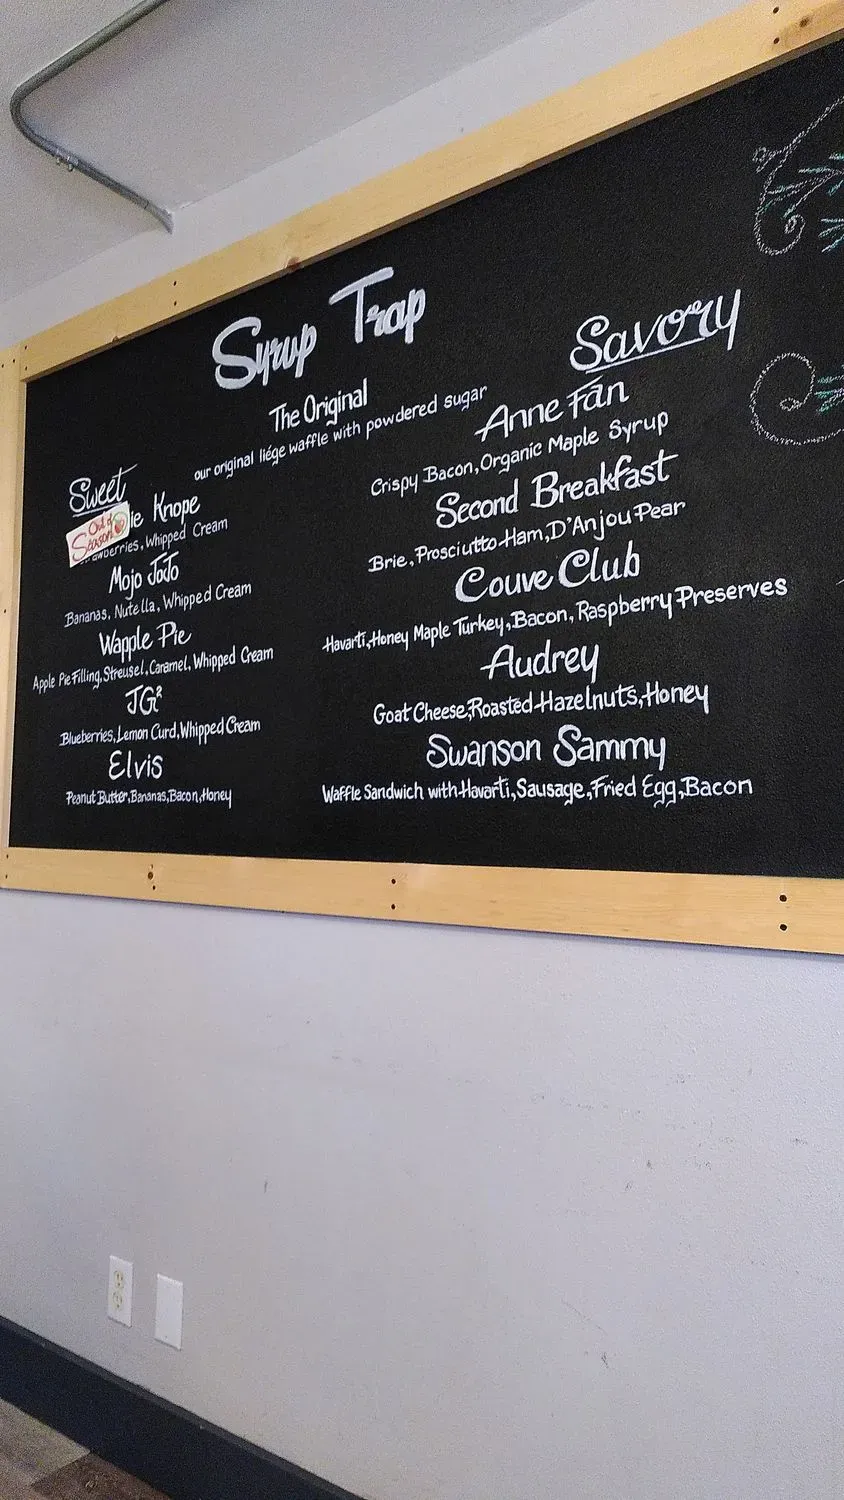 Syrup Trap
The Original
our original liége waffle with powdered sugar
Sweet
Out of
Season
Knope
Whipped Cream
Mojo JoJo
Bananas, Nutella, Whipped Cream
Wapple Pie
Apple Pie Filling, Streusel, Caramel, Whipped Cream
JG²
Blueberries, Lemon Curd, Whipped Cream
Elvis
Peanut Butter, Bananas, Bacon, Honey
Savory
Anne Fán
Crispy Bacon, Organic Maple Syrup
Second Breakfast
Brie, Prosciutto Ham, D'Anjou Pear
Couve Club
Havarti, Honey Maple Turkey, Bacon, Raspberry Preserves
Audrey
Goat Cheese, Roasted Hazelnuts, Honey
Swanson Sammy
Waffle Sandwich with Havarti, Sausage, Fried Egg, Bacon